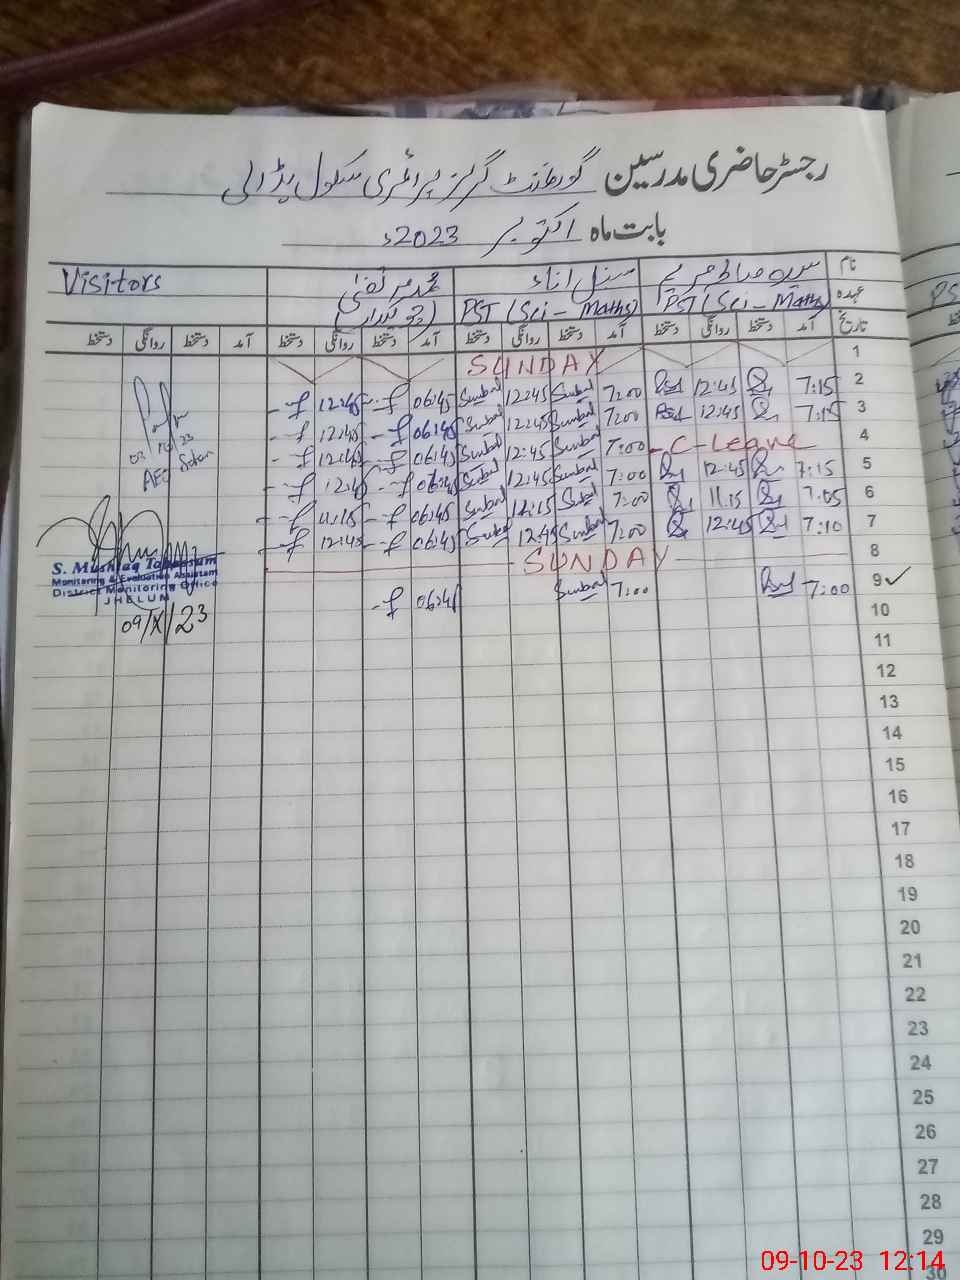 رجسٹر حاضری مدرسین گورنمنٹ گرلز پرائمری سکول
بابت ماہ اکتوبر 2023ء
نام Visitors
عہدہ PST (Sci - Maths) PST (Sci - Maths) (چوکیدار)
تاریخ آمد دستخط روانگی دستخط آمد دستخط روانگی دستخط آمد دستخط روانگی دستخط آمد دستخط روانگی دستخط
1 SUNDAY
2 7:15 12:45 7:00 Sunbal 12:45 Sunbal 06:45 12:45
3 7:15 12:45 7:00 Sunbal 12:45 Sunbal 06:45 12:45
4 C-Leave 7:00 Sunbal 12:45 Sunbal 06:45 12:45
5 7:15 12:45 7:00 Sunbal 12:45 Sunbal 06:45 12:45
6 7:05 11:15 7:00 Sunbal 11:15 Sunbal 06:45 11:15
7 7:10 12:45 7:00 Sunbal 12:45 Sunbal 06:45 12:45
8 SUNDAY
9 7:00 7:00 Sunbal 06:45
10
11
12
13
14
15
16
17
18
19
20
21
22
23
24
25
26
27
28
29
30
AEO
S. Mushtaq Tabassum
Monitoring & Evaluation Assistant
District Monitoring Office
JHELUM
09/X/23
PS
09-10-23 12:14